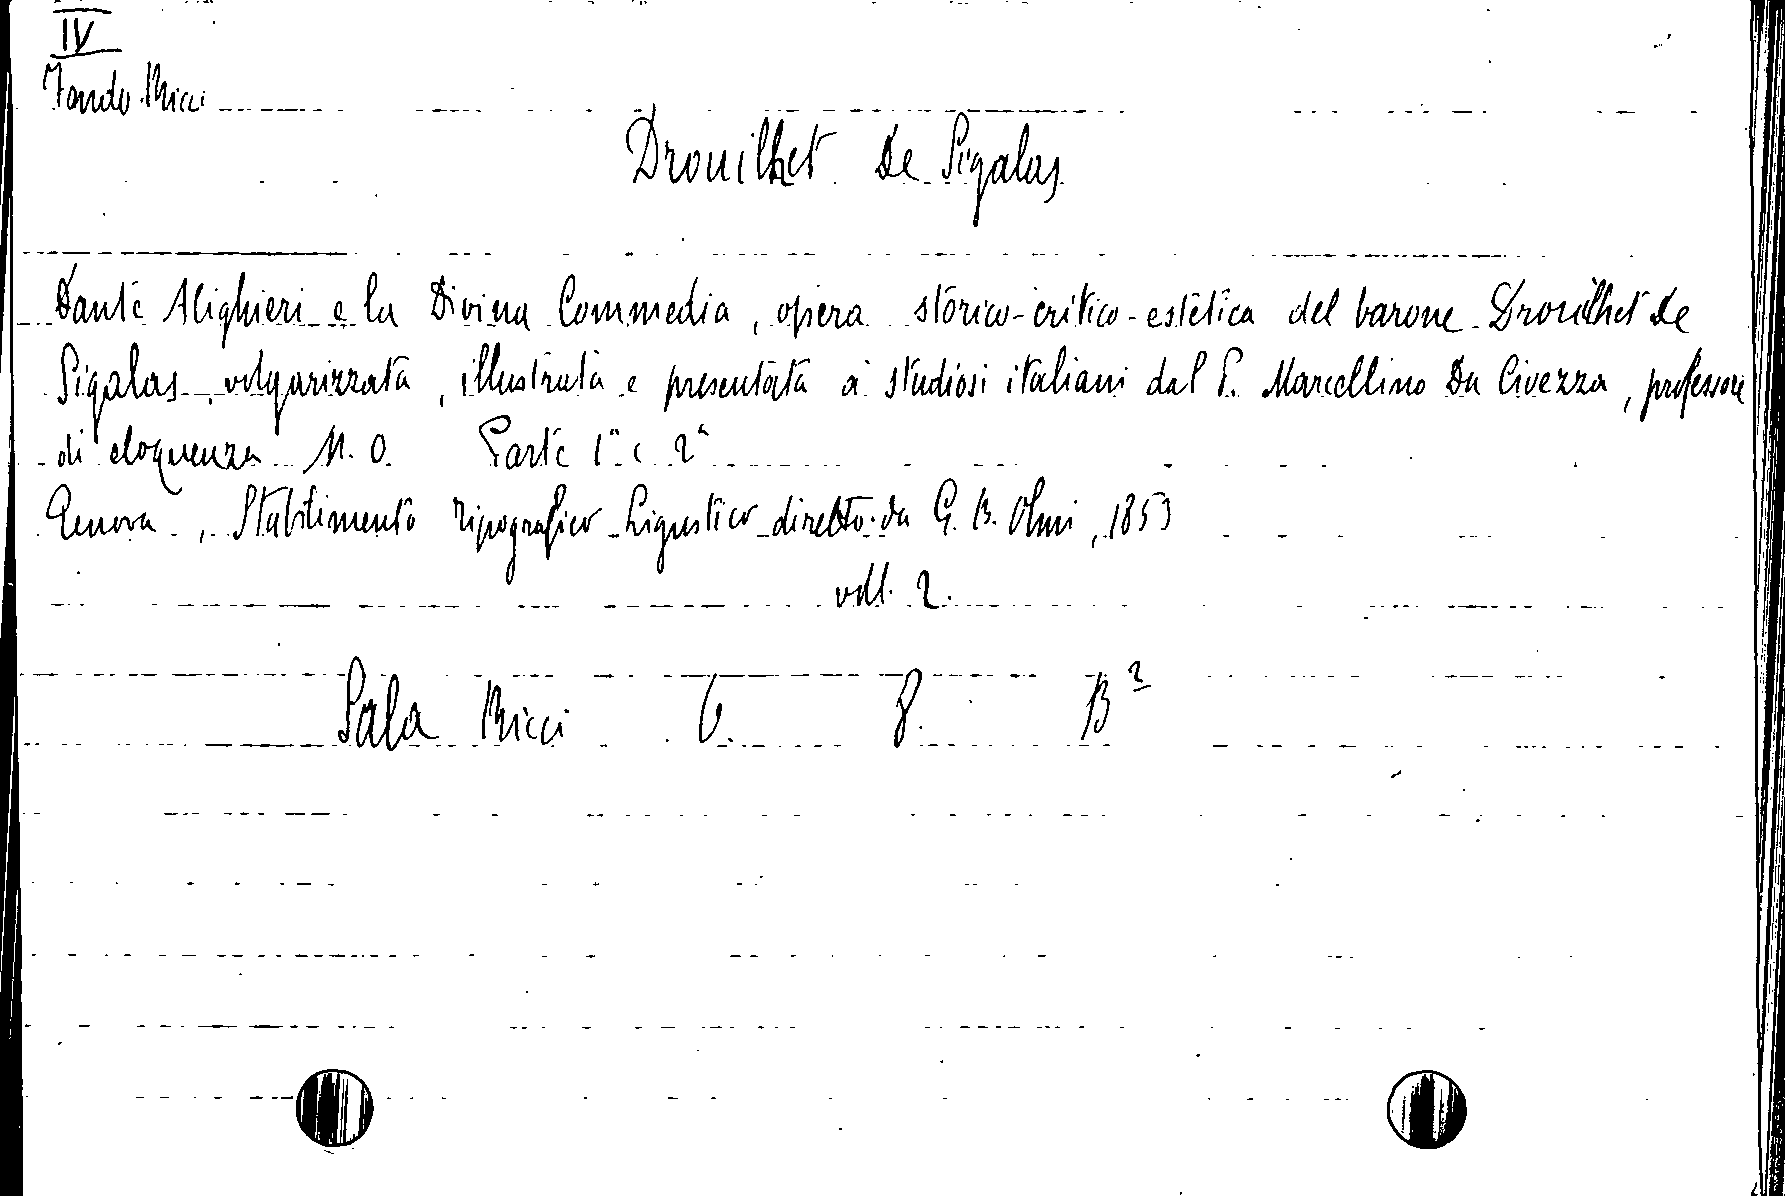 IV
Fondo Ricci
Drouilhet De Sigalas
Dante Alighieri e la Divina Commedia, opera storico-critico-estetica del barone Drouilhet De
Sigalas, volgarizzata, illustrata e presentata a' studiosi italiani dal P. Marcellino Da Civezza, professore
di eloquenza M. O. Parte 1ª e 2ª
Genova, Stabilimento Tipografico Ligustico diretto da G. B. Olmi, 1853
voll. 2.
Sala Ricci 6. 8. B²